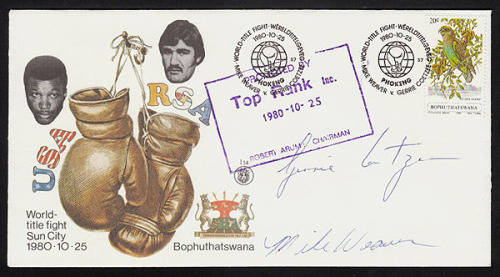 USA
RSA
World-
title fight
Sun City
1980·10·25
Bophuthatswana
WORLD-TITLE FIGHT-WÊRELDTITELGEVEG
1980-10-25
37
PHOKENG
MIKE WEAVER v. GERRIE COETZEE
WORLD-TITLE FIGHT-WÊRELDTITELGEVEG
1980-10-25
37
PHOKENG
MIKE WEAVER v. GERRIE COETZEE
BY
Top Rank Inc.
1980-10-25
ROBERT ARUM CHAIRMAN
20c
BOPHUTHATSWANA
Gerrie Coetzee
Mike Weaver